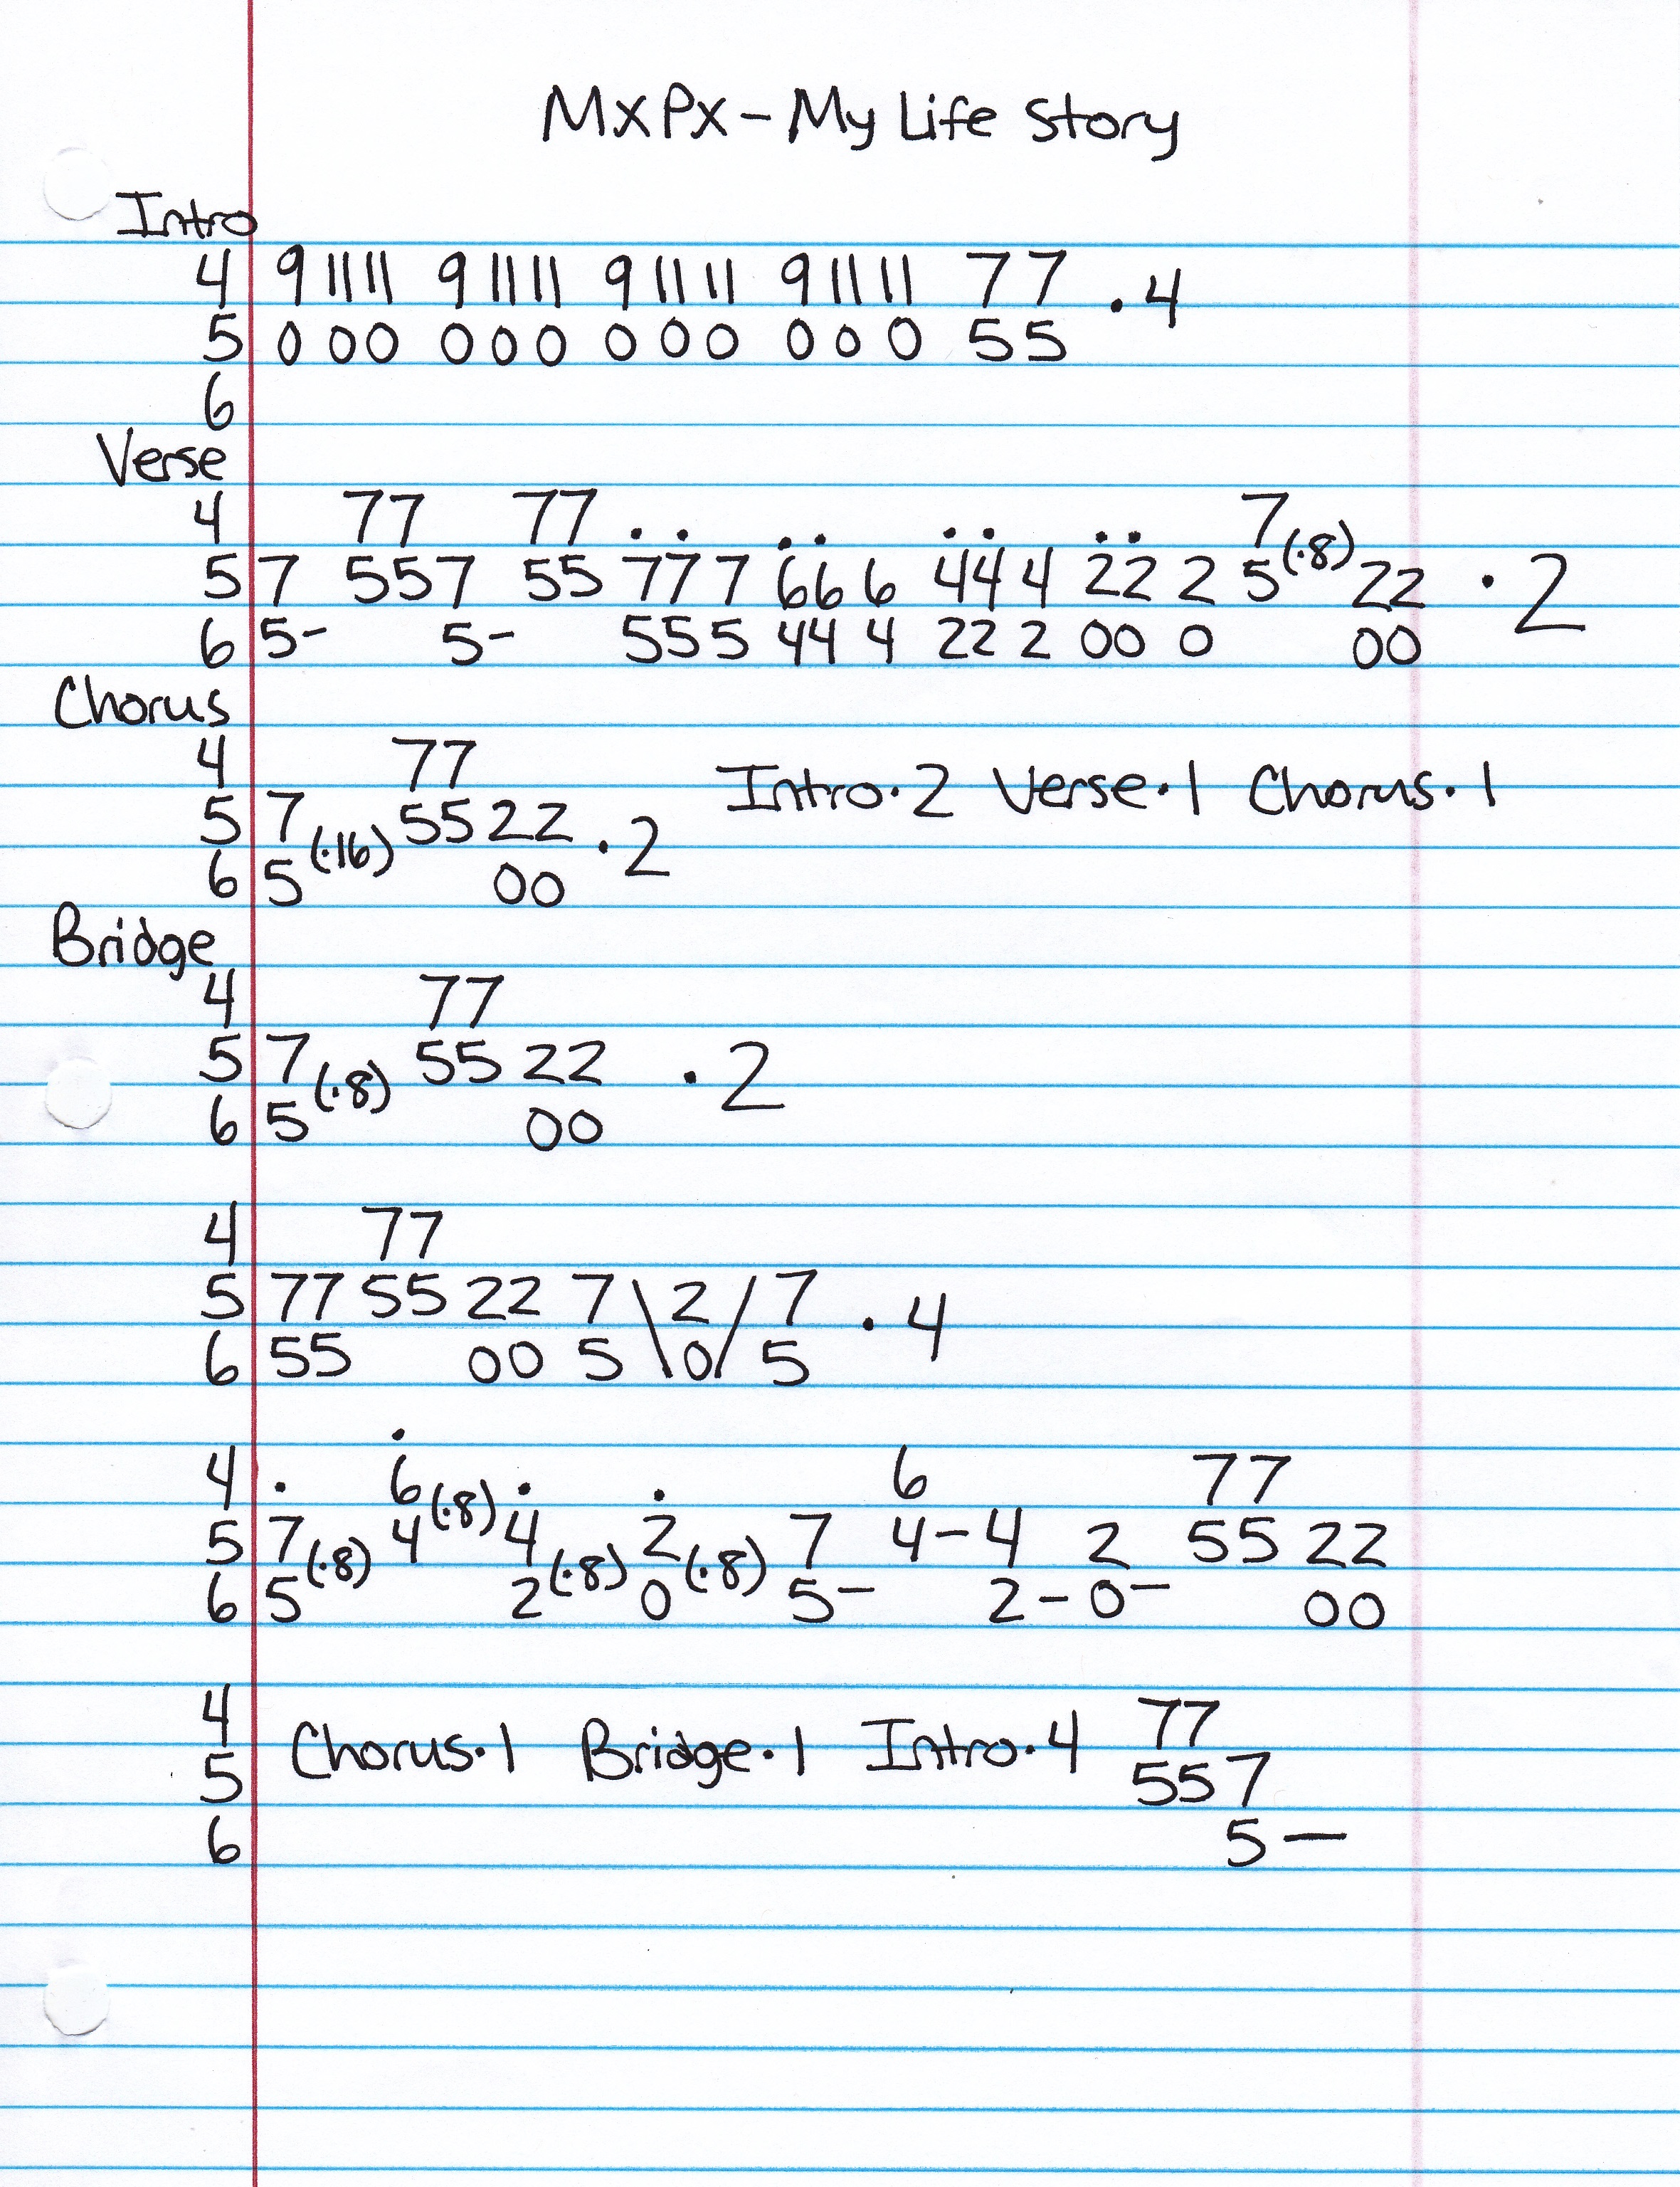 MXPX - My Life Story
Intro
4 9 11 11 9 11 11 9 11 11 9 11 11 7 7 · 4
5 0 0 0 0 0 0 0 0 0 0 0 0 5 5
6
Verse
4 77 77 . . . . . . . . 7
5 7 557 55 777 666 444 222 5 (·8) 22 · 2
6 5- 5- 555 444 222 000 00
Chorus
4 77 Intro·2 Verse·1 Chorus·1
5 7 (·16) 55 22 · 2
6 5 00
Bridge
4 77
5 7 (·8) 55 22 · 2
6 5 00
4 77
5 77 55 22 7 \ 2 / 7 · 4
6 55 00 5 \ 0 / 5
4 . 6 (·8) . . 6 77
5 7 (·8) 4 4 2 7 4 - 4 2 55 22
6 5 2 (·8) 0 (·8) 5 - 2 - 0 - 00
4 77
5 Chorus·1 Bridge·1 Intro·4 557
6 5 -